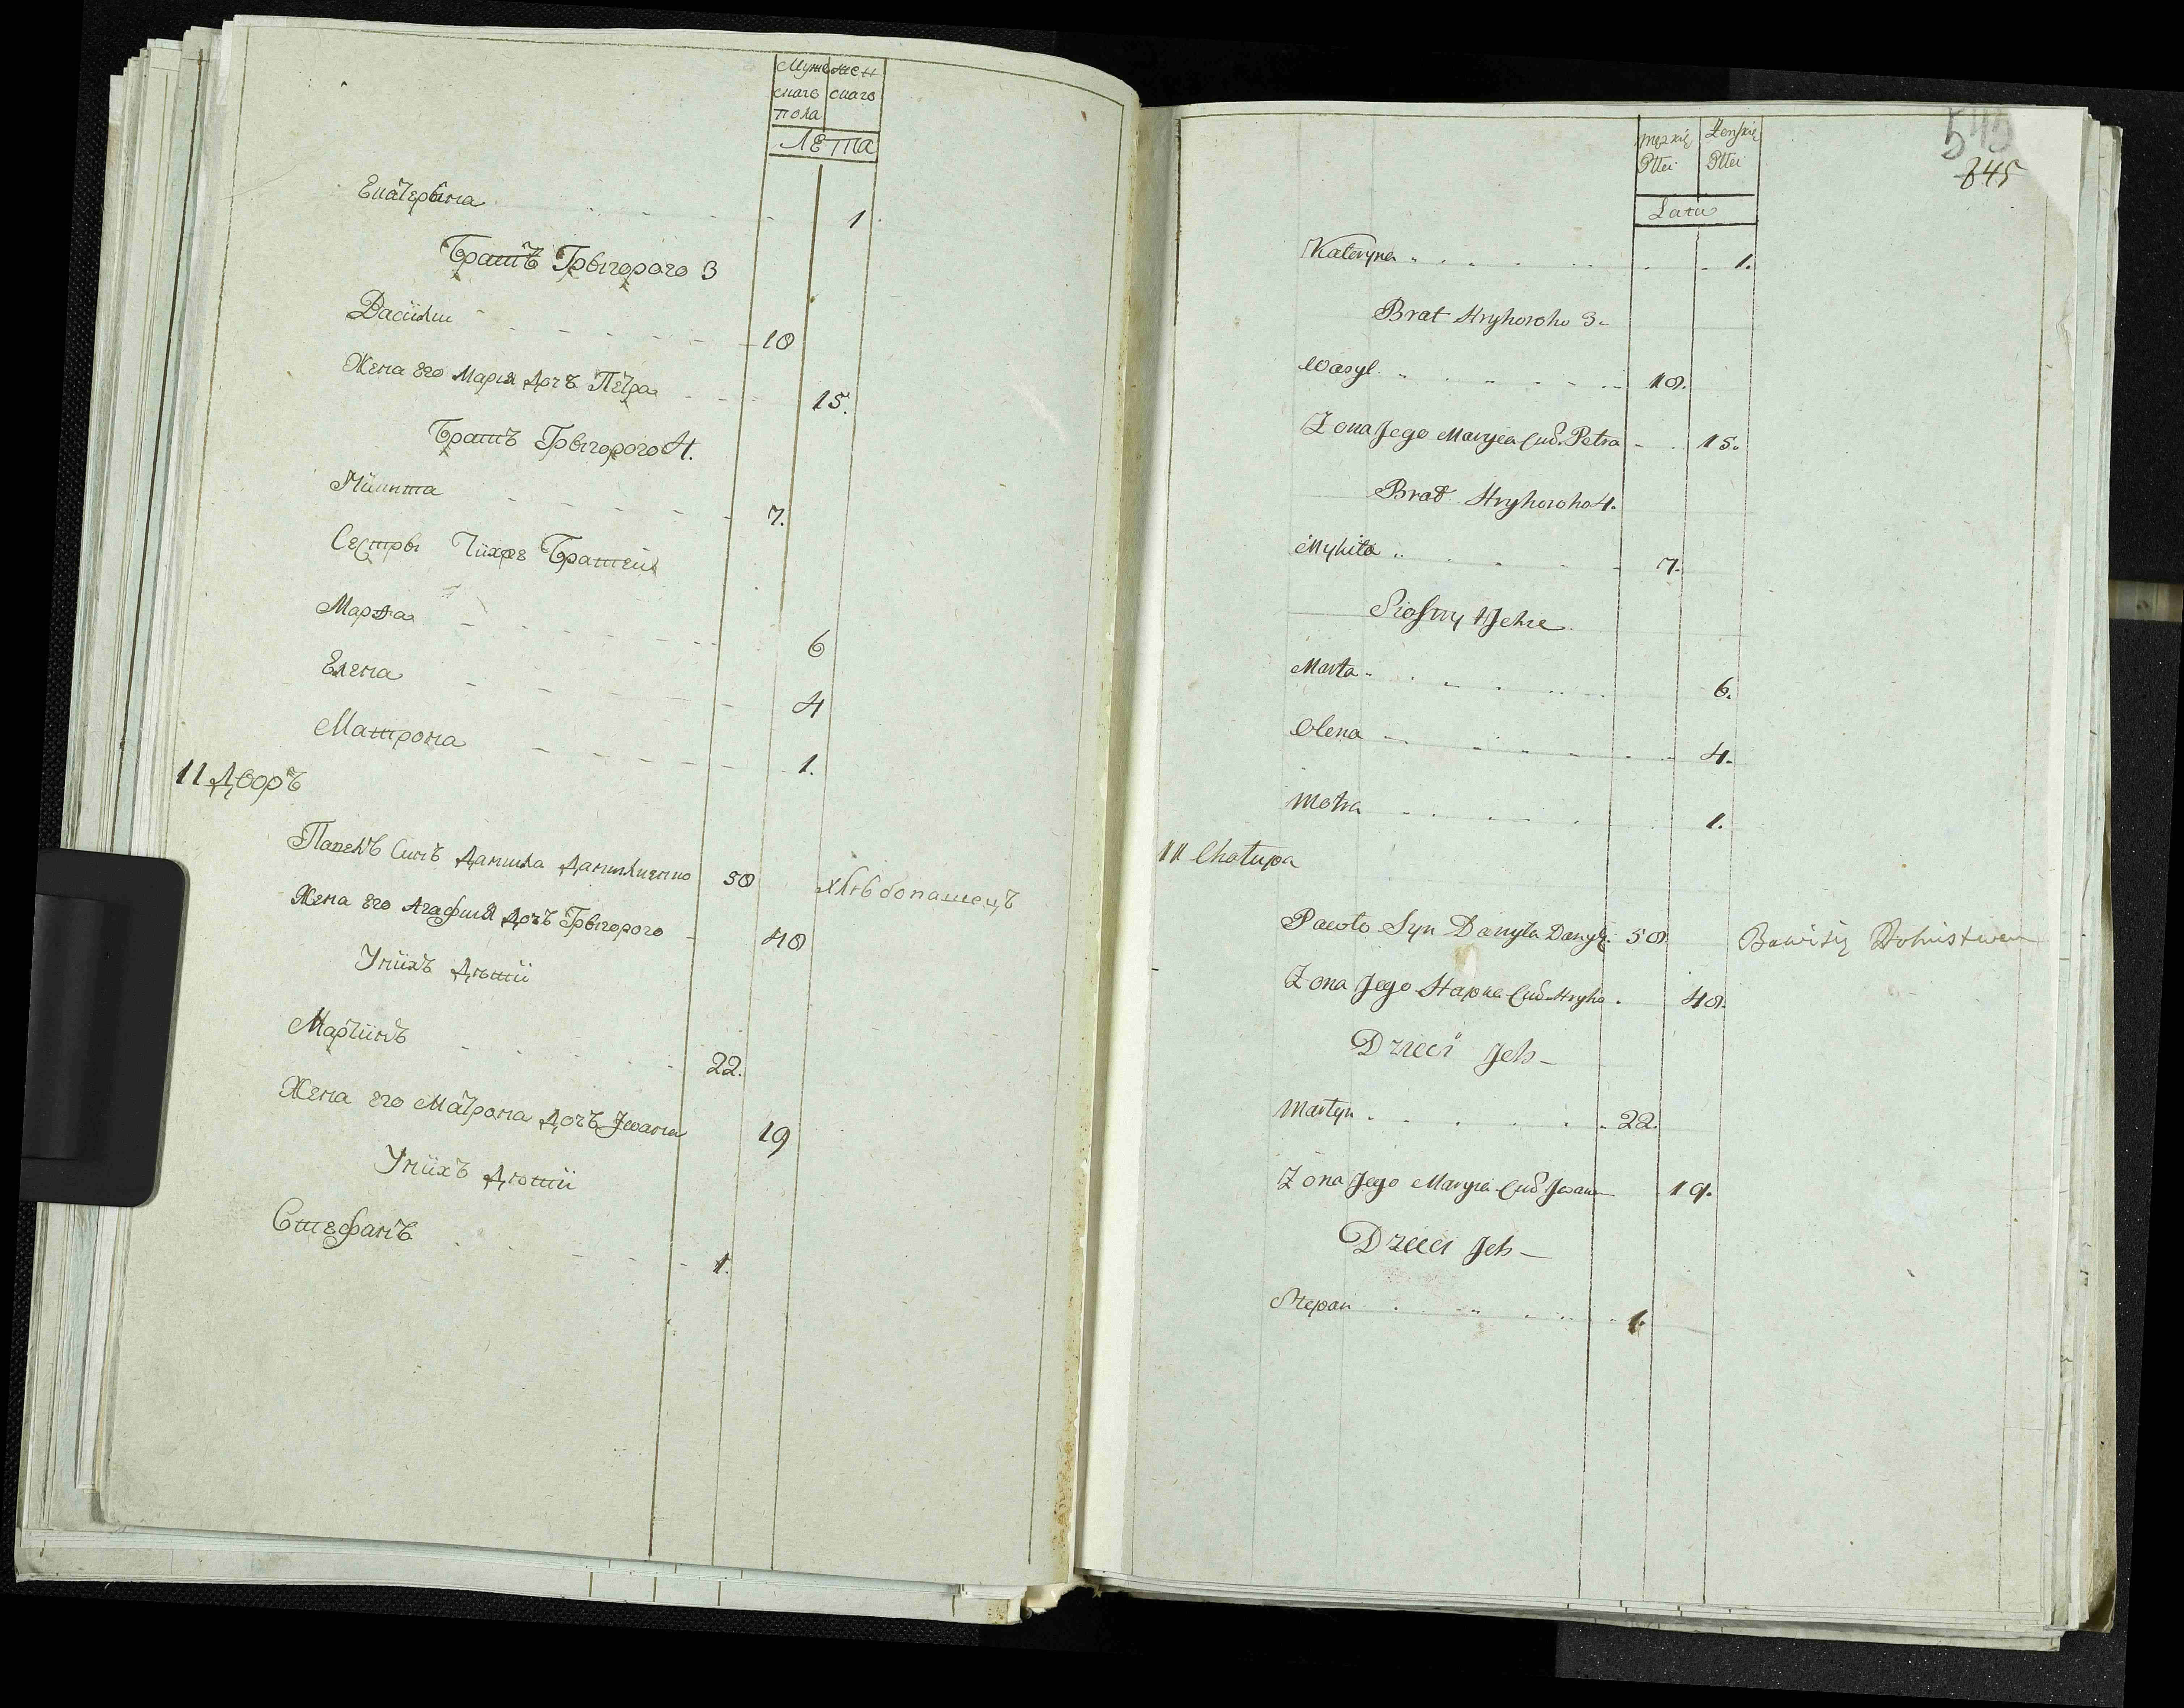 Муже жен
скаго скаго
пола
ЛЕта
Екатерына 1
Братъ Грыгорого 3
Василш 18
Жена его Мария дочъ Петра 15.
Братъ Грыгорого 4.
Мiикита 7.
Сестры Тiихре Братеи
Марта 6
Елена 4
Матрона 1.
11 Дворъ
Павелъ Синъ Данила Данилиенко 50 хлѣбопашецъ
Жена его Агафия дочъ Грыгорого 40
Унiихъ Дѣтiи
Мартiинъ 22.
Жена его Матрона дочъ Jвана 19
Унiихъ Дѣтiи
Стефанъ 1.
545
845
Męzkię Żenskię
Płei Płei
Lata
Kateryna 1.
Brat Hryhoroho 3.
Wasyl 18.
Zona Jego Maryea Cud. Petra 15.
Brat Hryhoroho 4.
Mykita 7.
Siostry Jehre
Marta 6.
Olena 4.
Motra 1.
11 Chałupa
Pawło Syn Danyła Danył. 50. Bawi się Rolnistwem
Zona Jego Hapka Cud. Hryho. 40.
Dzieci Jeh
Martyn 22.
Zona Jego Maryea Cud Jwana 19.
Dzieci Jeh
Stepan 1.